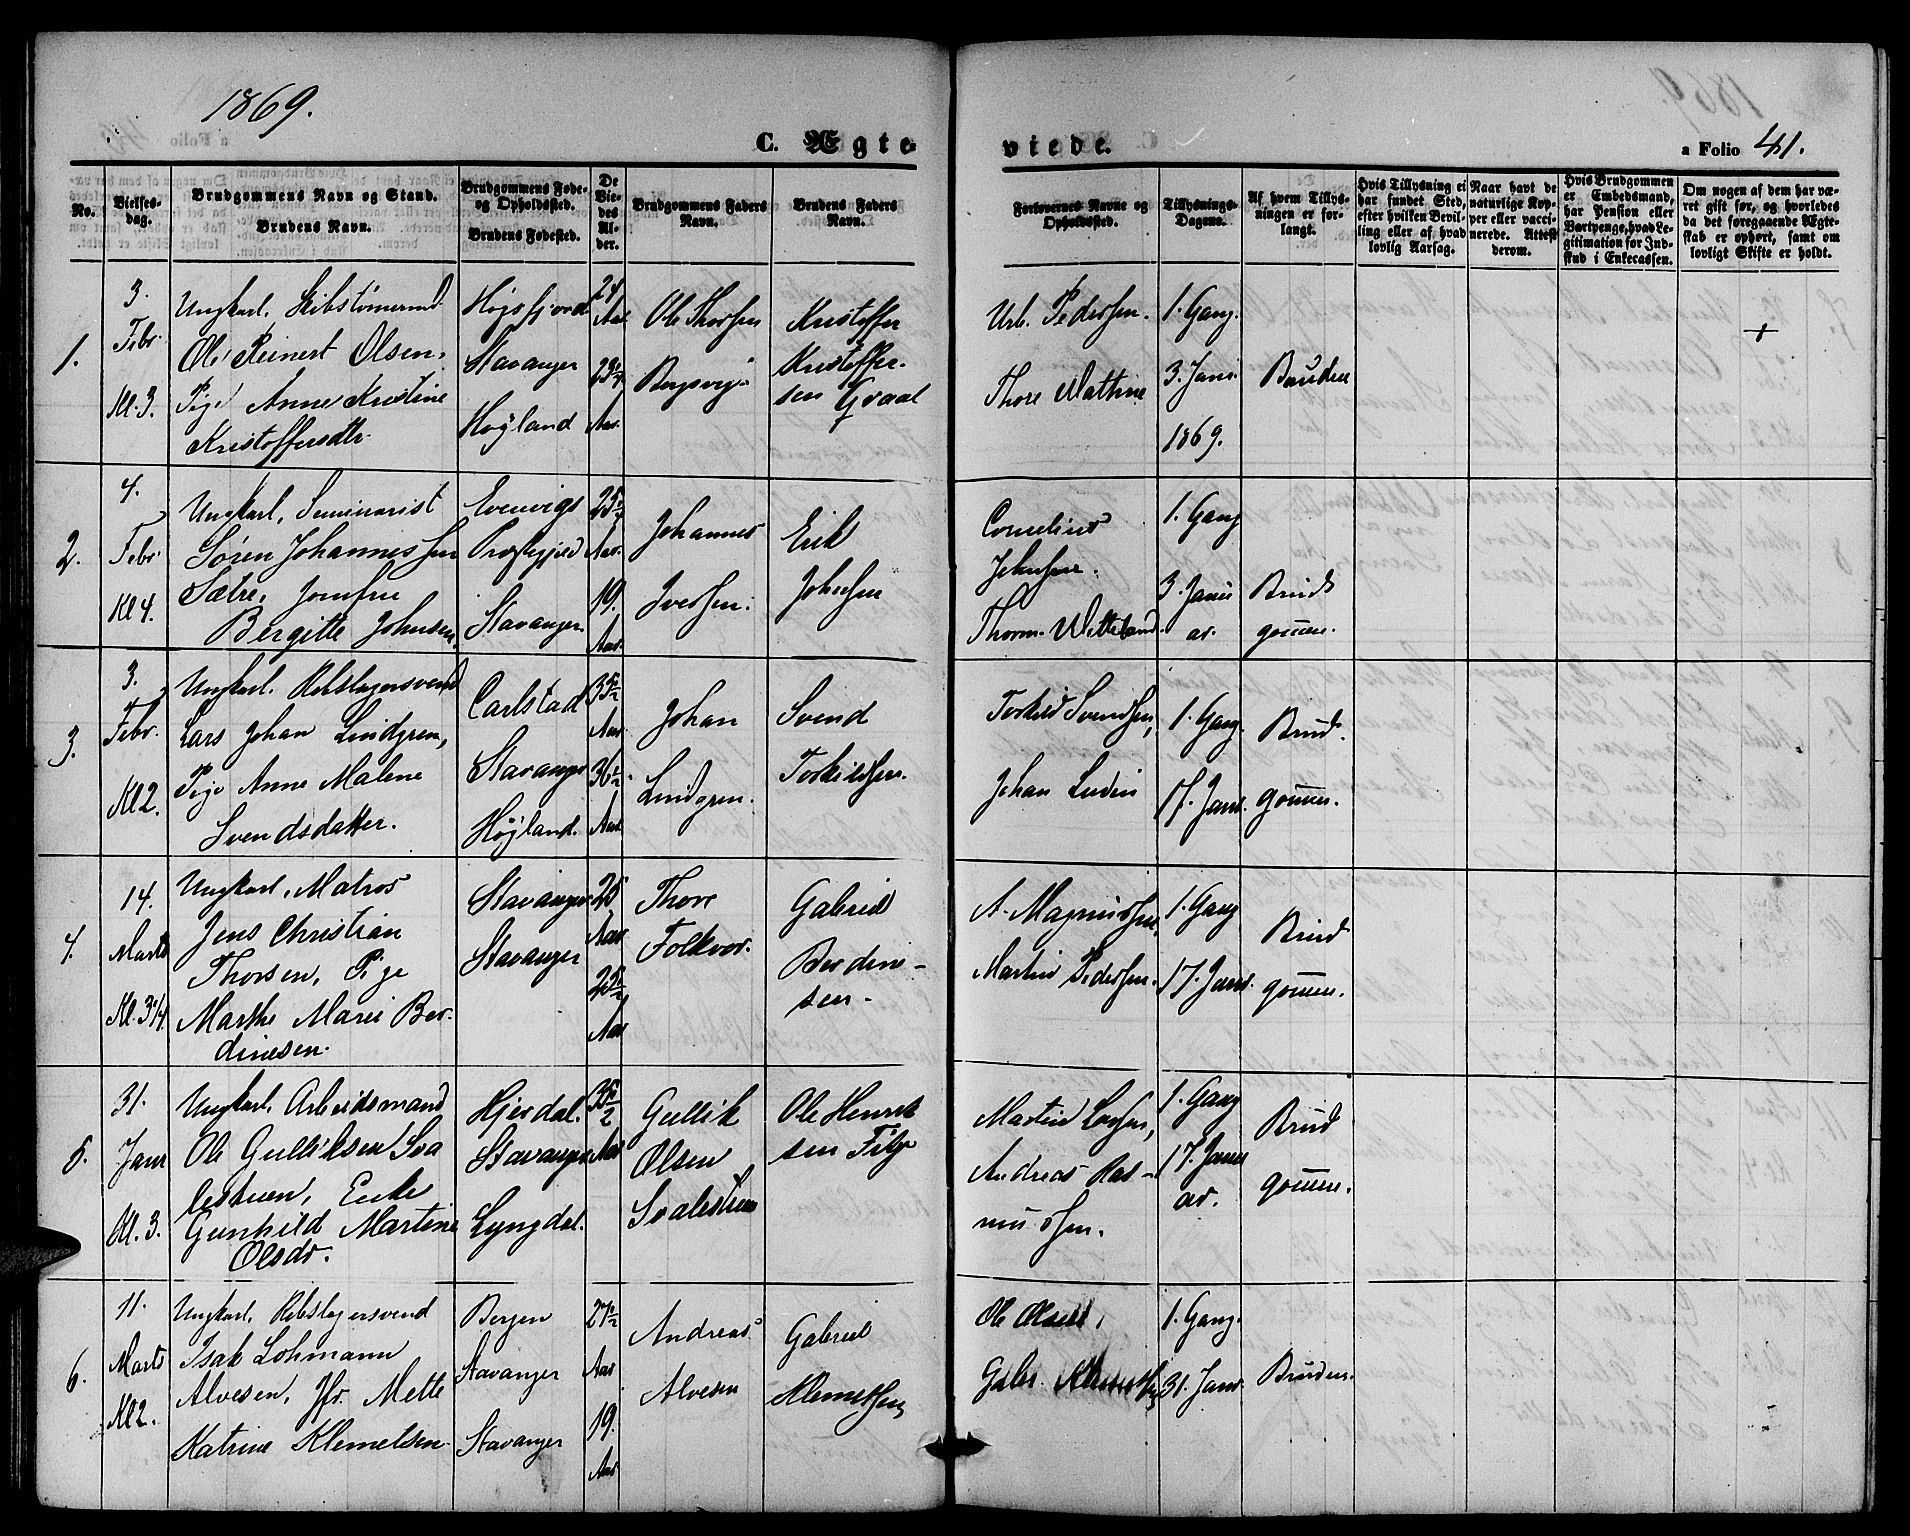 1869.
C. Ægte
viede.
a Folio 41.
No.
Vielses-
dag.
Brudgommens Navn og Stand.
Brudens Navn.
Brudgommens Føde-
og Opholdssted.
Brudens Fødested.
De
Vie-
des
Al-
der.
Brudgommens Faders
Navn.
Brudens Faders
Navn.
Forlovernes Navne og
Opholdssted.
Tillysnings-
Dagene.
Af hvem Tillys-
ningen er for-
langt.
Hvis Tillysning ei
har fundet Sted,
efter hvilken Bevil-
ling eller af hvad
lovlig Aarsag.
Naar havt de
naturlige Kop-
per eller vacci-
nerede. Attest
derom.
Hvis Brudgommen
er Embedsmand,
har Pension eller
Vartpenge, hvad Le-
gitimation for Ind-
skud i Enkecassen.
Om nogen af dem har væ-
ret gift før, og hvorledes
da det foregaaende Ægte-
skab er ophørt, samt om
lovligt Skifte er holdt.
1.
3.
Febr.
Kl. 3.
Ungkarl. Skibstømermd
Ole Reinert Olsen.
Pige Anne Kristine
Kristoffersdtr.
Høgsfjord
Stavanger
Høyland
24
Aar
23 1/4
Aar.
Ole Thorsen
Bergsvig
Kristoffer
Kristoffer-
sen Graal
Urb. Pedersen.
Thore Mathine
1. Gang.
3. Jan.
1869.
Bruden
+
2.
4.
Febr
Kl 4.
Ungkarl, Seminarist
Søren Johannessen
Sætre, Jomfru
Bergitte Johnsen.
Evenvigs
Præstegjeld
Stavanger.
Aar.
19.
Aar.
Johannes
Iversen.
Erik
Johnsen
Cornelius
Johnsen.
Thorm.
1. Gang
3. Janu
ar.
Brud
gomen.
3.
3.
Febr.
Kl 2.
Ungkarl. Rebslagersvend
Lars Johan Lindgren,
Pige Anne Malene
Svendsdatter.
Carlstad
Stavanger
Høyland.
35 1/2
Aar.
36 1/2
Aar
Johan
Lindgren.
Svend
Torkildsen.
Torkild Svendsen,
Johan Ludin
1. Gang.
17. Janr.
Brud
gomen.
4.
14.
Marts
Kl. 3 1/4
Ungkarl, Matros
Jens Christian
Thorsen, Pige
Marthe Marie Ber-
dinesen.
Stavanger
Stavanger
25
Aar
25 1/2
Aar
Thore
Folkvor.
Gabriel
Berdine-
sen.
A. Magnussen,
Martin Pedersen.
1. Gang
17. Janr.
Brud
gomen.
5.
31.
Janr
Kl. 3.
Ungkarl, Arbeidsmand
Ole Gulliksen Sva
lestuen, Enke
Gunhild Martine
Olsdr.
Hjerdal.
Stavanger
Lyngdal.
35 1/2
Aar
Gullik
Olsen
Svalestuen
Ole Henrik
sen
Martin Larsen,
Andreas Ras-
mussen.
1. Gang
17. Janu
ar.
Brud
gomen.
6.
11.
Marts
Kl 2.
Ungkarl, Rebslagersvend
Isak Lohmann
Alvesen, Jfr. Mette
Katrine Klemetsen
Bergen
Stavanger
Stavanger
27 1/2
Aar
19.
Aar
Andreas
Alvesen
Gabriel
Klemetsen
Ole Olsen,
Gabr. Klemetsen
1. Gang.
31. Janr.
Bruden.